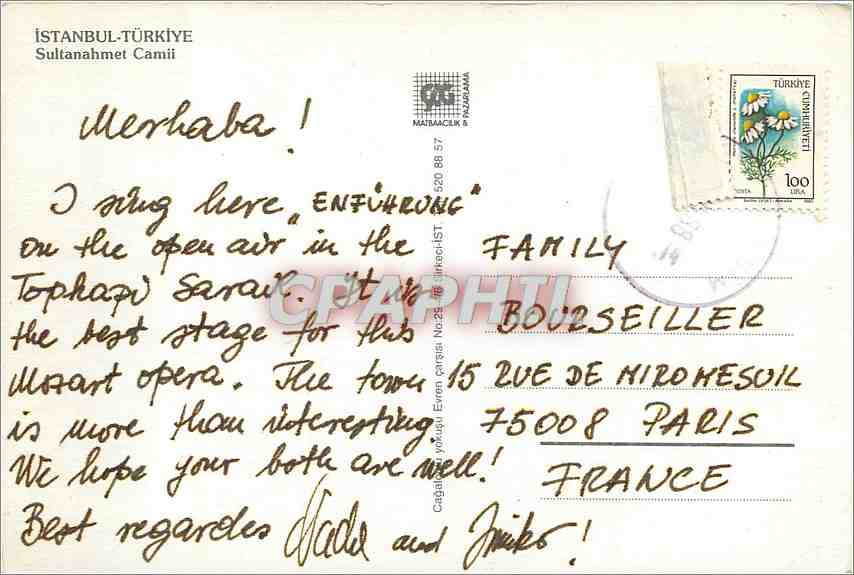 İSTANBUL-TÜRKİYE
Sultanahmet Camii
ÇAĞ
MATBAACILIK & PAZARLAMA
TÜRKİYE CUMHURİYETİ
POSTA
100
LIRA
Merhaba!
I sing here „ENFÜHRUNG"
on the open air in the
Topkapi Sarail. It is
the best stage for this
Mozart opera. The town
is more than interesting.
We hope your both are well!
Best regardes and
FAMILY
BOURSEILLER
15 RUE DE MIROMESUIL
75008 PARIS
FRANCE
yokuşu Evren çarşısı No:29 Sirkeci-İST. 520 88 57
CPAPHIL